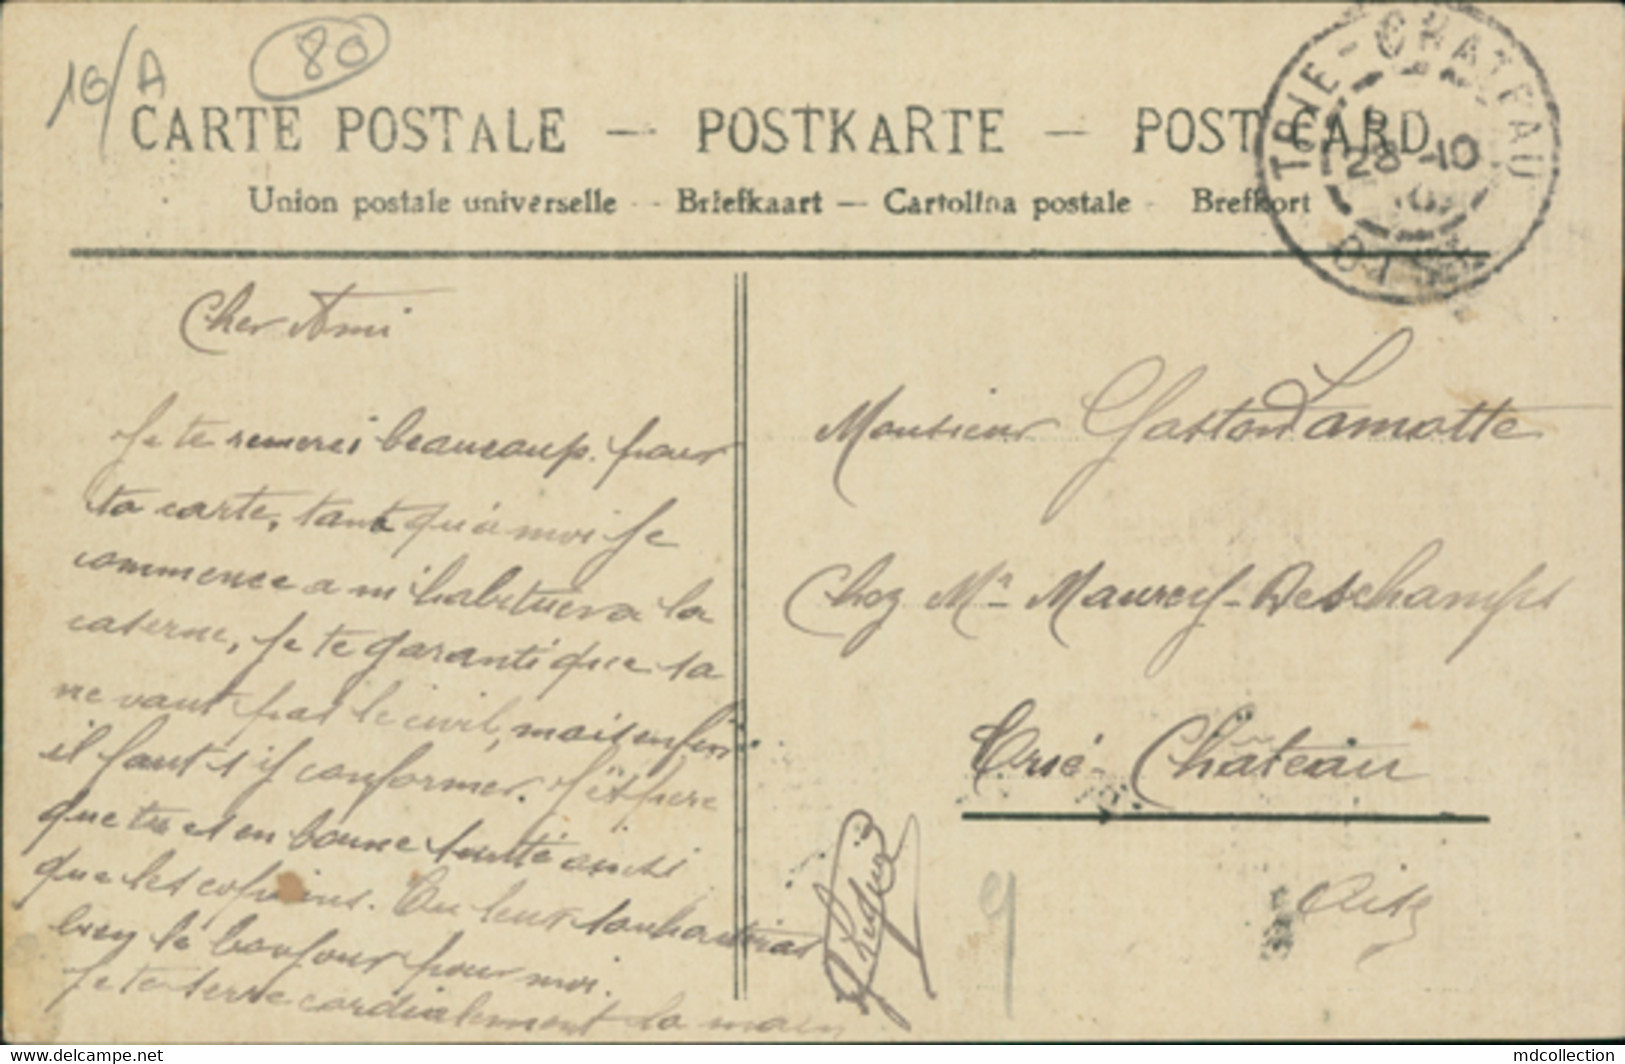 16/A
80
CARTE POSTALE — POSTKARTE — POST CARD
Union postale universelle - Briefkaart — Cartolina postale - Brefkort
TRIE-CHATEAU
28 -10
OISE
Cher Ami
Je te remerci beaucoup pour
ta carte, tant qu'a moi je
commence a m'habituer a la
caserne, je te garanti que sa
ne vaut pas le civil, mais enfin
il faut s'y conformer. J'espère
que tu et en bonne santé ainsi
que les copains. Tu leur souhaiteras
bien le bonjour pour moi.
Je te serre cordialement la main
Monsieur Gaston Lamotte
Chez Mr Maurey-Deschamps
Trié-Château
Oise
9
www.delcampe.net
mdcollection